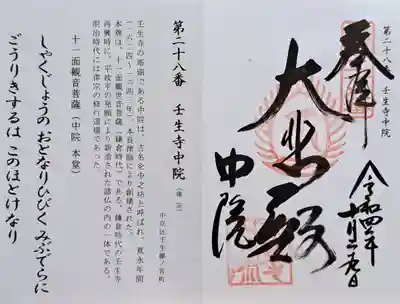 第二十八番 壬生寺中院
奉拝
大悲殿
中院
令和四年
第二十八番 壬生寺中院(律宗)
中京区壬生梛ノ宮町
壬生寺の塔頭である中院は、古名を中之坊と呼ばれ、寛永年間
(一六二四〜一六四三年)、本良律師により創建された。
本尊は、十一面観世音菩薩(鎌倉時代)である。鎌倉時代の壬生寺
再興時に、平政平の発願により新造された諸仏の内の一体である。
明治時代には律宗の修行道場であった。
十一面観音菩薩(中院 本堂)
しゃくじょうの おとなりひびく みぶでらに
ごうりきするは このほとけなり